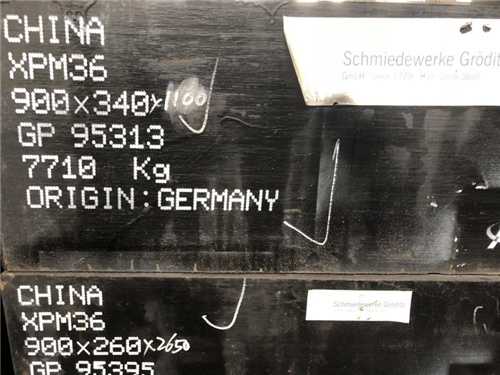 CHINA
XPM36
900x340x1100
GP 95313
7710 Kg
ORIGIN:GERMANY
Schmiedewerke Grödit
CHINA
XPM36
900x260x2650
GP 95395
Schmiedewerke Grödit